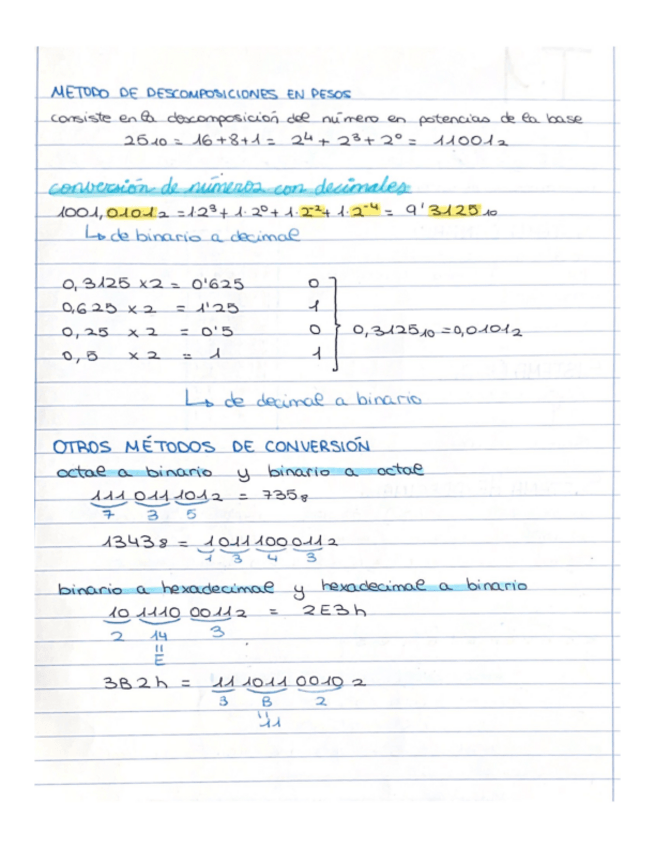 METODO DE DESCOMPOSICIONES EN PESOS
consiste en la descomposición del número en potencias de la base
25₁₀ = 16+8+1 = 2⁴ + 2³ + 2⁰ = 11001₂
conversión de números con decimales
1001,0101₂ = 12³ + 1·2⁰ + 1·2⁻² + 1·2⁻⁴ = 9'3125₁₀
↳ de binario a decimal
0,3125 x2 = 0'625 0
0,625 x 2 = 1'25 1
0,25 x 2 = 0'5 0 0,3125₁₀ = 0,0101₂
0,5 x 2 = 1 1
↳ de decimal a binario
OTROS MÉTODOS DE CONVERSIÓN
octal a binario y binario a octal
111 011 101₂ = 735₈
7 3 5
1343₈ = 1 011 100 011₂
1 3 4 3
binario a hexadecimal y hexadecimal a binario
10 1110 0011₂ = 2E3h
2 14 3
=
E
3B2h = 11 1011 0010 2
3 B 2
"11